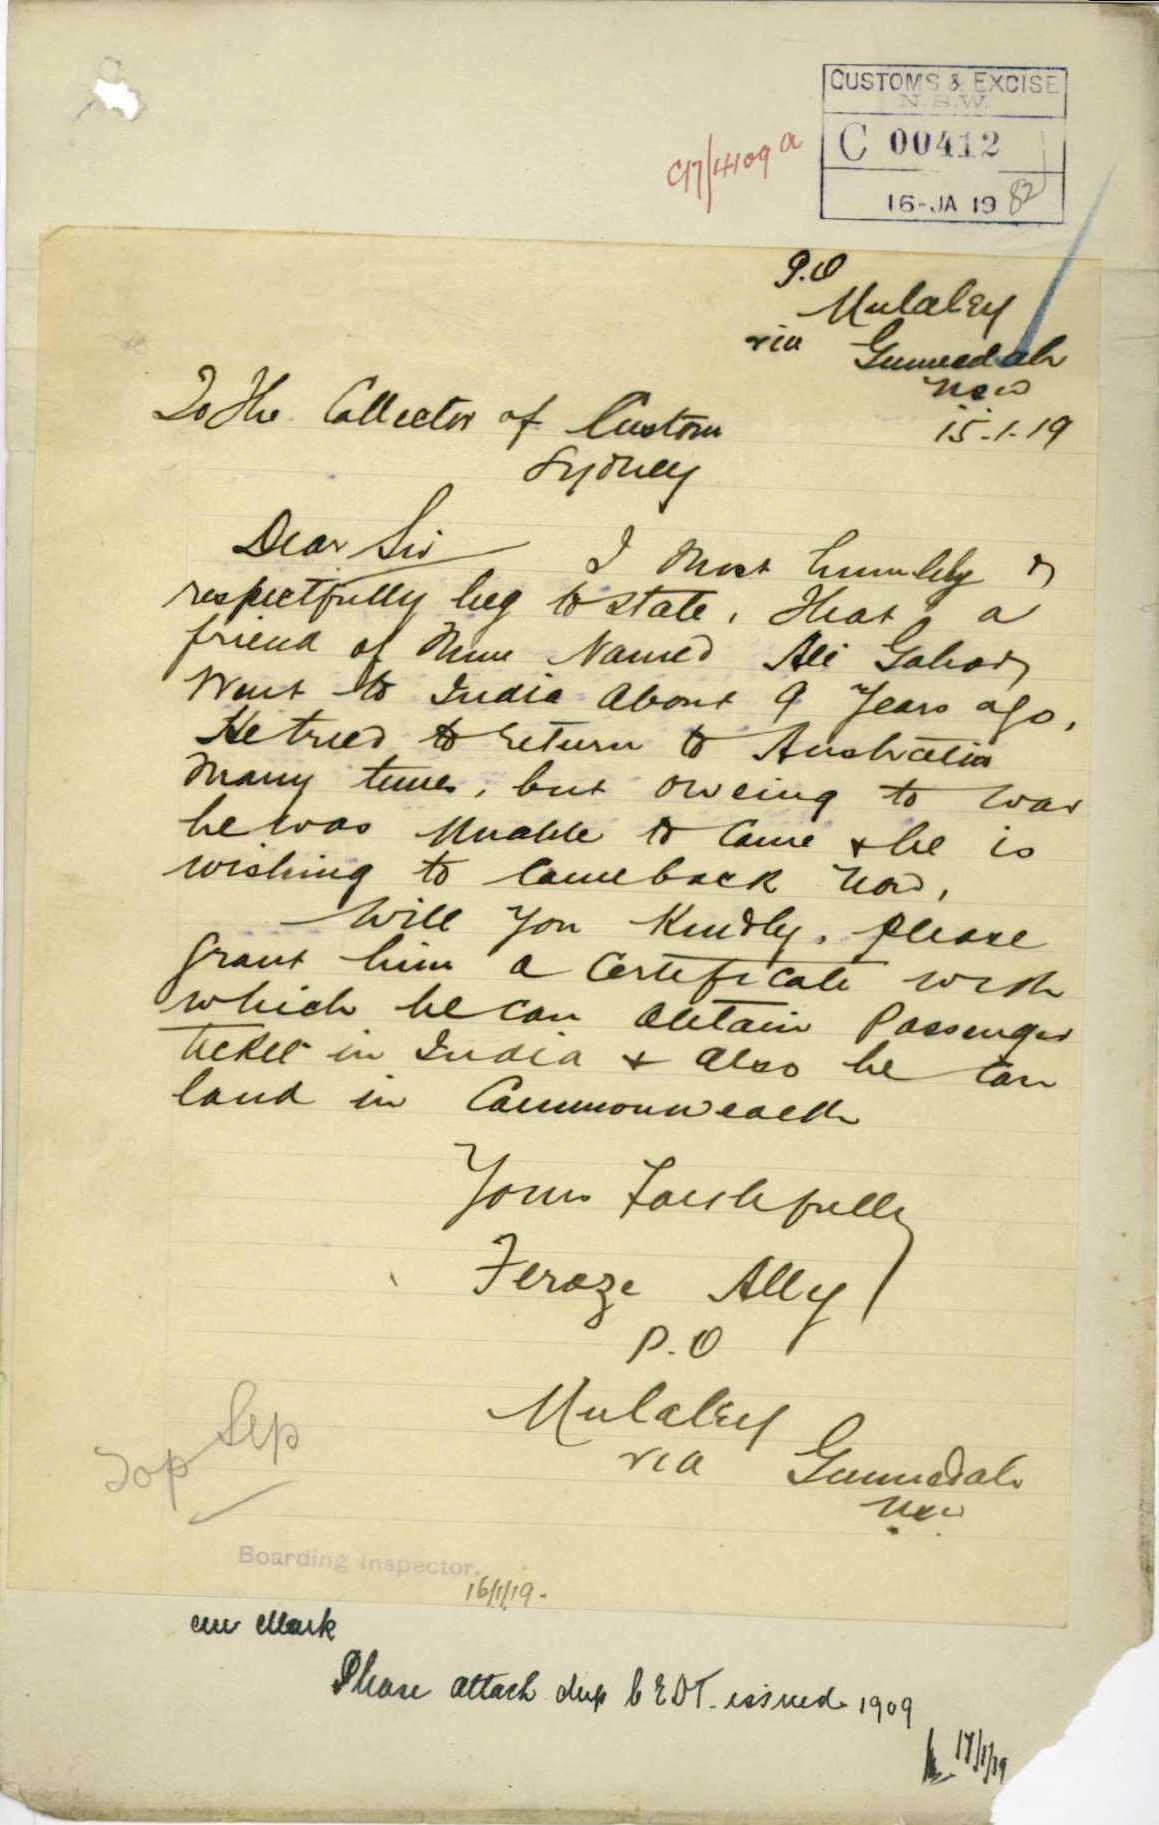 CUSTOMS & EXCISE
N.S.W.
C 00412
16-JA 19
82
C17/4109 a
P.O
Mulaley
via Gunnedah
NSW
15.1.19
To The Collector of Custom
Sydney
Dear Sir I Most humbly &
respectfully beg to state, that a
friend of Mine Named Ali Gohar,
Went to India About 9 Years ago,
He tried to return to Australia
Many times, but oweing to war
he was Unable to Come & he is
wishing to Comeback Now,
Will You Kindly, please
grant him a Certificate with
which he can Obtain Passenger
ticket in India & also he can
land in Commonwealth
Yours Faithfully
Feroze Ally
P.O
Mulaley
via Gunnedah
NSW
Top Sep
Boarding Inspector.
16/1/19.
Mr Mark
Please attach dup CEDT. issued 1909
17/1/19